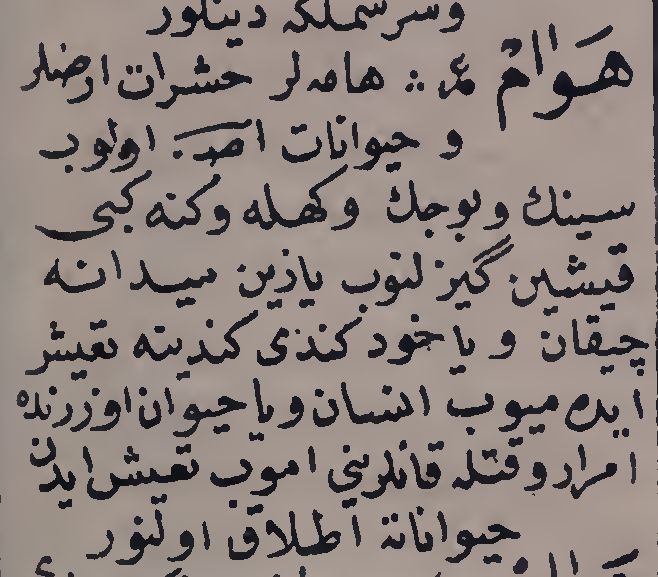 وسرسملكه دینلور
هَوامّ ع ∴ هامه لر حشرات ارضلر
و حیوانات اولوب
سینك وبوجك وكهله وكنه كبی
قیشین گیزلنوب یازین میدانه
چیقان و یاخود كندی كندینه تعیش
ایده میوب انسان ویا حیوان اوزرنده
امرار وقتله قانلرینی اموب تعیش ایدن
حیواناته اطلاق اولنور